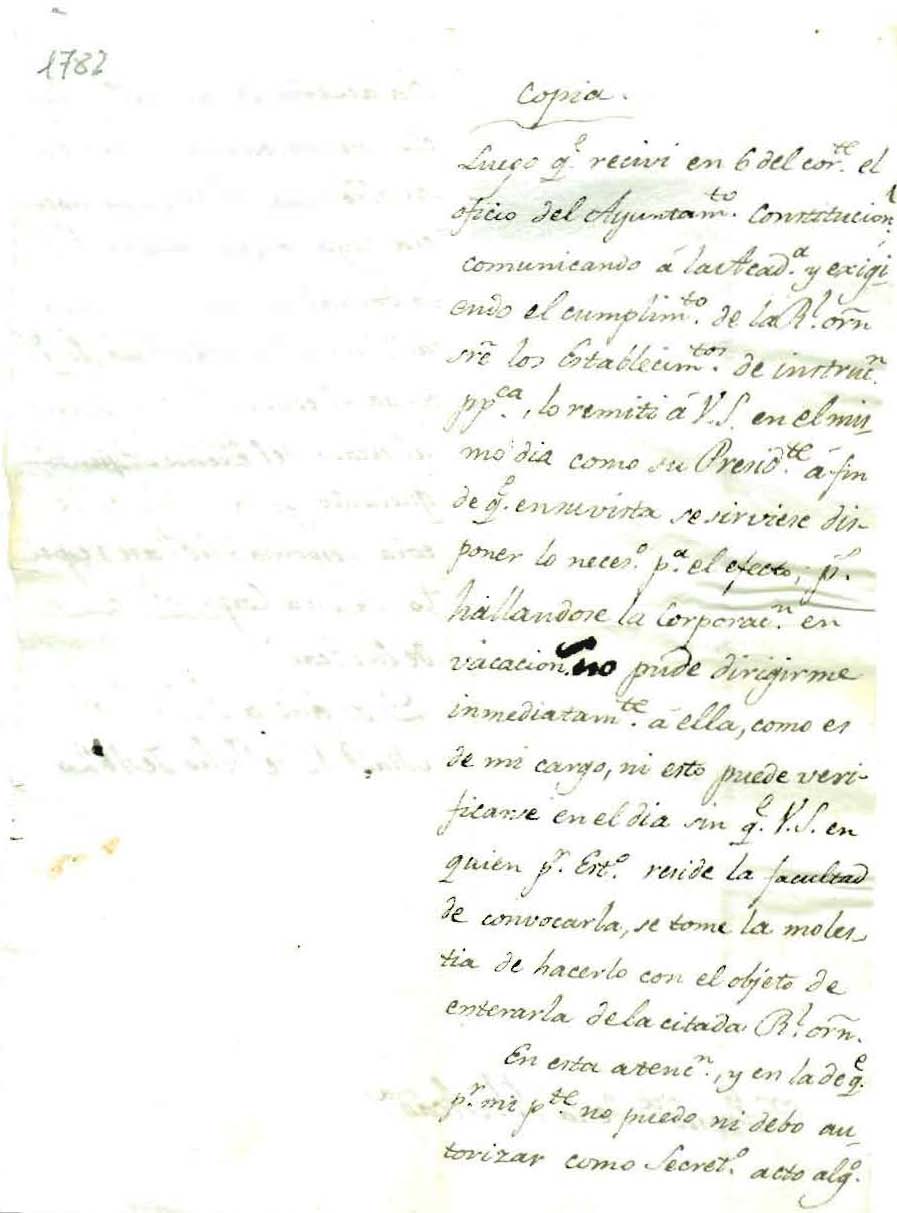 1782
Copia.
Luego q.^e recivi en 6 del cor.^te el
oficio del Ayuntam.^to Constitucion.^l
comunicando á la Acad.^a y exigi-
endo el cumplim.^to de la R.^l orñ
sr̃e los Establecim.^tos de instruc.^n
pp.^ca, lo remiti á V.S. en el mis-
mo dia como su Presid.^te á fin
de q.^e en su vista se sirviese dis-
poner lo neces.^o p.^a el efecto; p.^s
hallandose la Corporac.^n en
vacacion no pude dirigirme
inmediatam.^te á ella, como es
de mi cargo, ni esto puede veri-
ficarse en el dia sin q.^e V.S. en
quien p.^r Est.^o reside la facultad
de convocarla, se tome la moles-
tia de hacerlo con el objeto de
enterarla de la citada R.^l orñ.
En esta atenc.^n, y en la de q.^e
p.^r mi p.^te no puedo ni debo au-
torizar como Secret.^o acto alg.^o